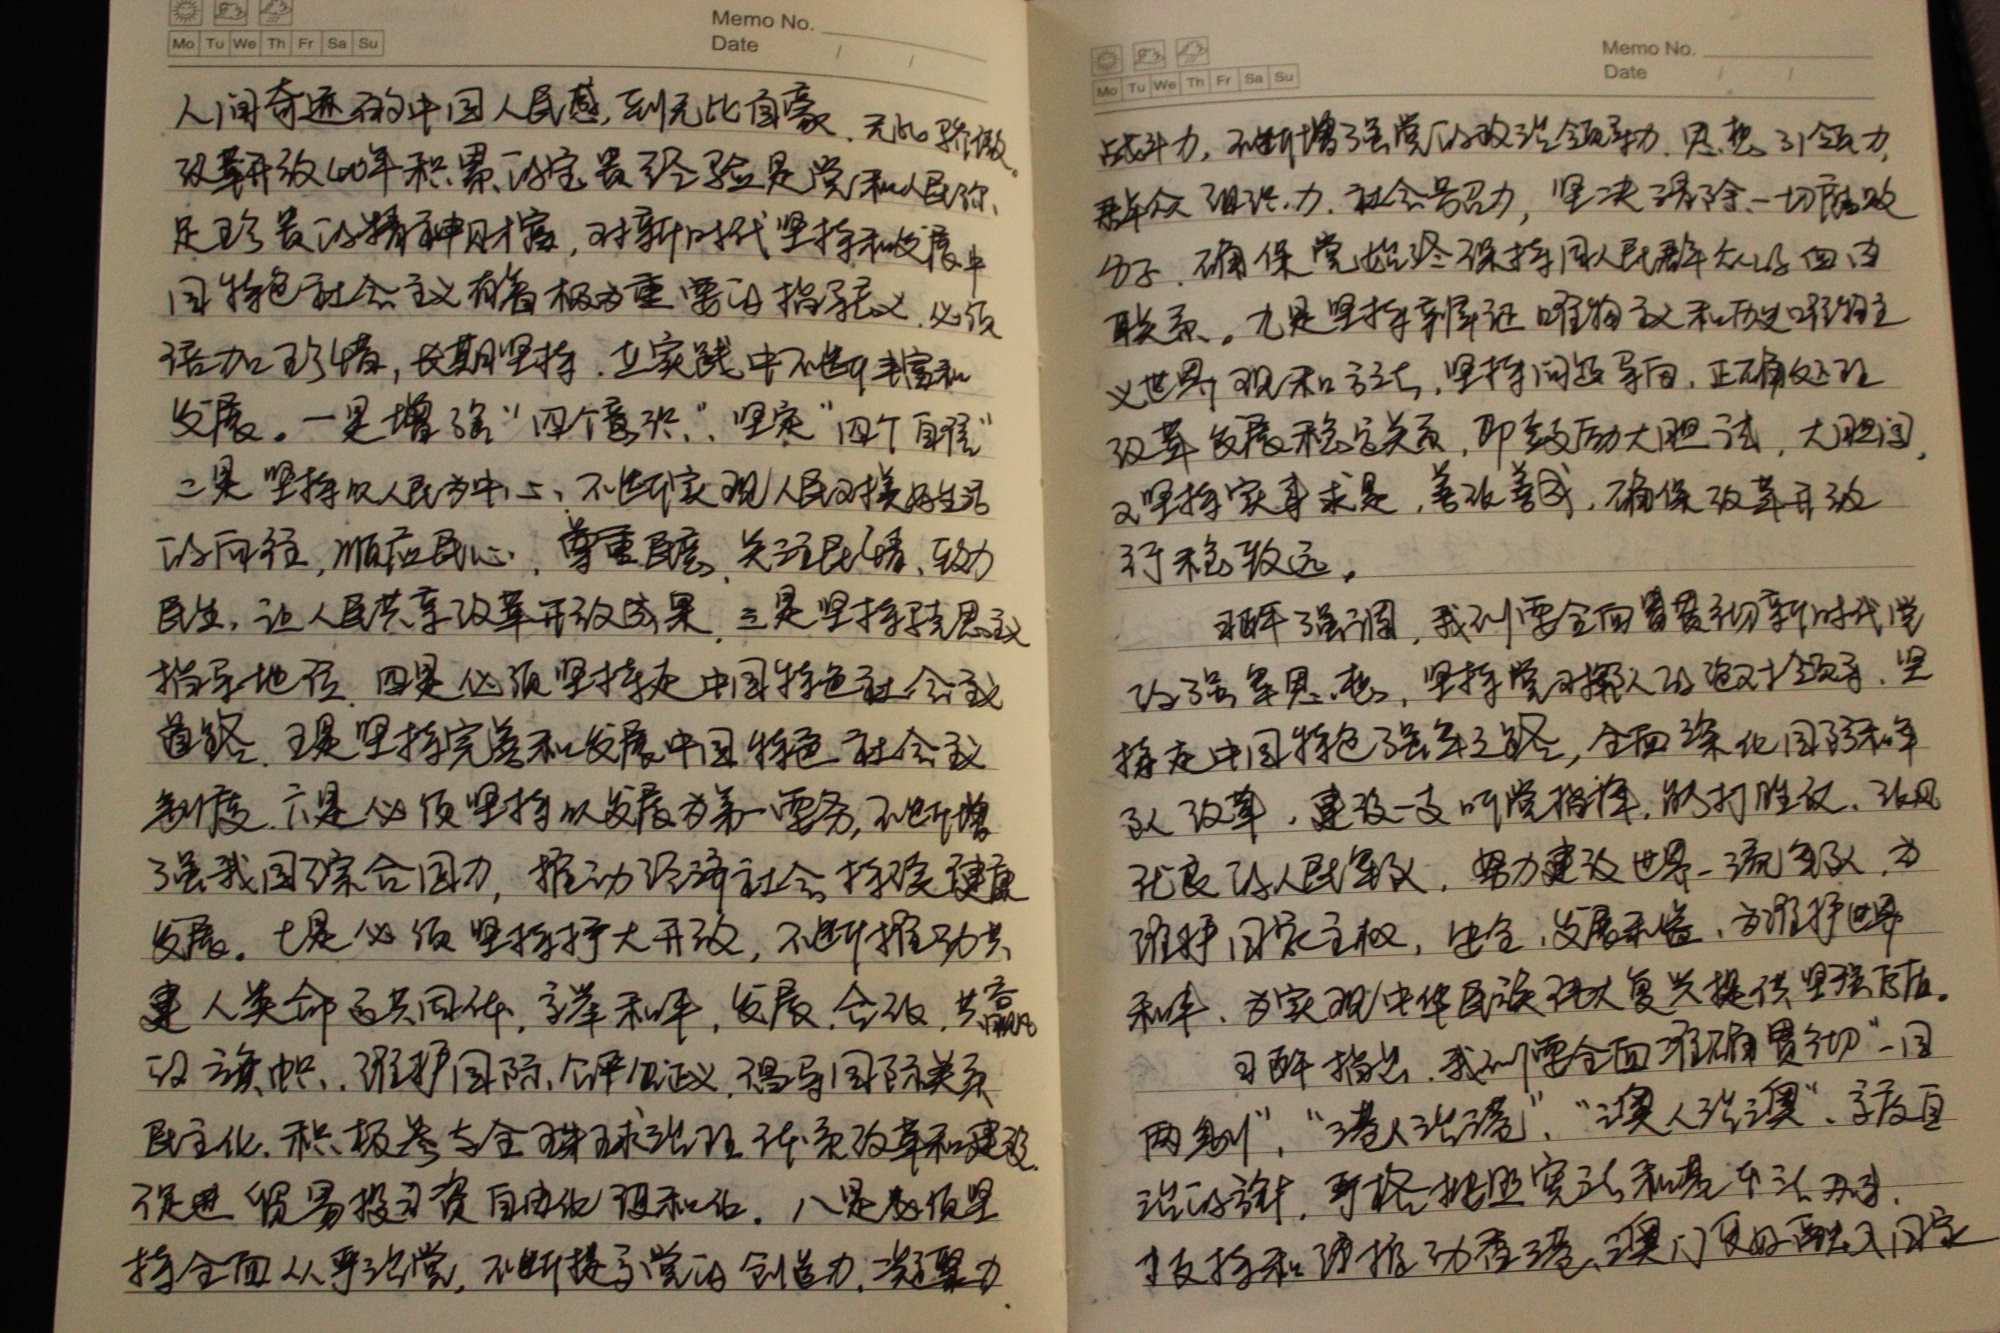 Memo No.
Date / /
Mo Tu We Th Fr Sa Su
人间奇迹的中国人民感到无比自豪、无比骄傲。
改革开放40年积累的宝贵经验是党和人民弥
足珍贵的精神财富，对新时代坚持和发展中
国特色社会主义有着极为重要的指导意义，必须
倍加珍惜，长期坚持，在实践中不断丰富和
发展。一是增强“四个意识”、坚定“四个自信”
二是坚持以人民为中心、不断实现人民对美好生活
的向往，顺应民心、尊重民意、关注民情、致力
民生，让人民共享改革开放成果，三是坚持马克思主义
指导地位，四是必须坚持走中国特色社会主义
道路，五是坚持完善和发展中国特色社会主义
制度，六是必须坚持以发展为第一要务，不断增
强我国综合国力，推动经济社会持续健康
发展。七是必须坚持扩大开放，不断推动共
建人类命运共同体，高举和平，发展，合作，共赢
的旗帜，维护国际公平正义，倡导国际关系
民主化，积极参与全球治理体系改革和建设，
促进贸易投资自由化便利化。八是必须坚
持全面从严治党，不断提高党的创造力，凝聚力
Memo No.
Date / /
Mo Tu We Th Fr Sa Su
战斗力，不断增强党的政治领导力、思想引领力，
群众组织力、社会号召力，坚决清除一切腐败
分子，确保党始终保持同人民群众的血肉
联系。九是坚持辩证唯物主义和历史唯物主
义世界观和方法，坚持问题导向，正确处理
改革发展稳定关系，即鼓励大胆试，大胆闯，
又坚持实事求是，善作善成，确保改革开放
行稳致远。
习近平强调，我们要全面贯彻新时代党
的强军思想，坚持党对军队的绝对领导，坚
持走中国特色强军之路，全面深化国防和军
队改革，建设一支听党指挥，能打胜仗，作风
优良的人民军队，努力建设世界一流军队，为
维护国家主权，安全，发展利益，为维护世界
和平，为实现中华民族伟大复兴提供坚强后盾。
习近平指出，我们要全面准确贯彻“一国
两制”，“港人治港”，“澳人治澳”，高度自
治的方针，严格按照宪法和基本法办事，
支持和推动香港、澳门更好融入国家